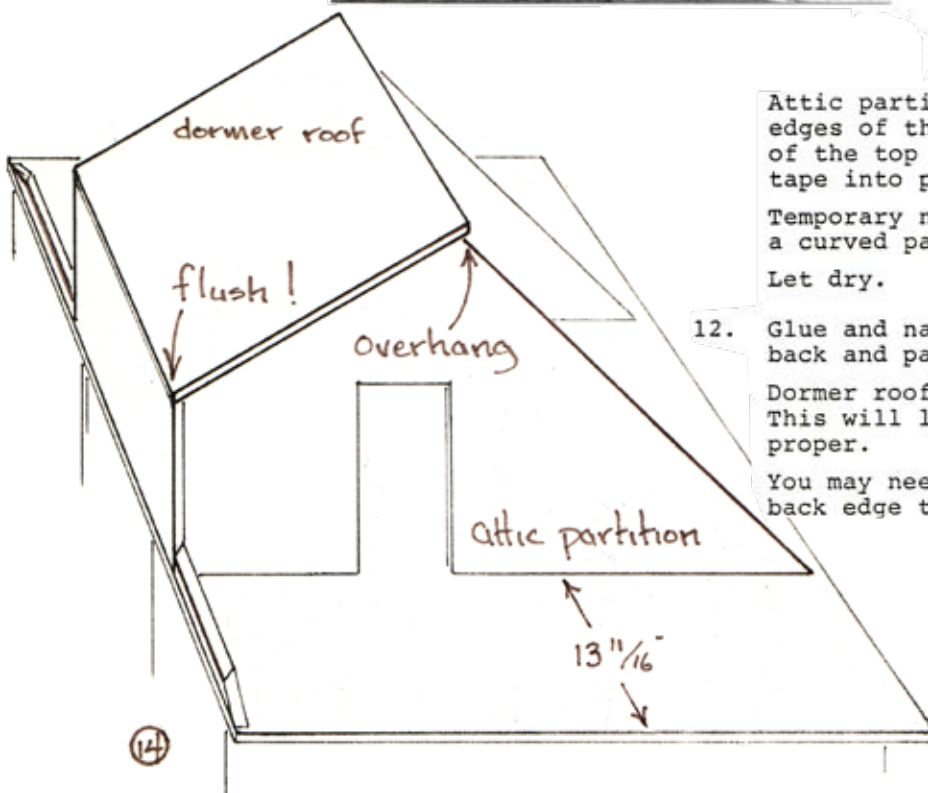 dormer roof
flush !
overhang
attic partition
13 11/16"
14
Attic parti
edges of th
of the top
tape into p
Temporary n
a curved pa
Let dry.
12. Glue and na
back and pa
Dormer roof
This will l
proper.
You may nee
back edge t